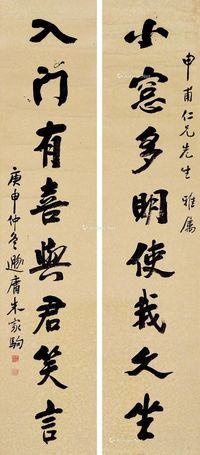 申甫仁兄先生 雅属
小窓多明使我久坐
入门有喜與君笑言
庚申仲冬遯庸朱家駒